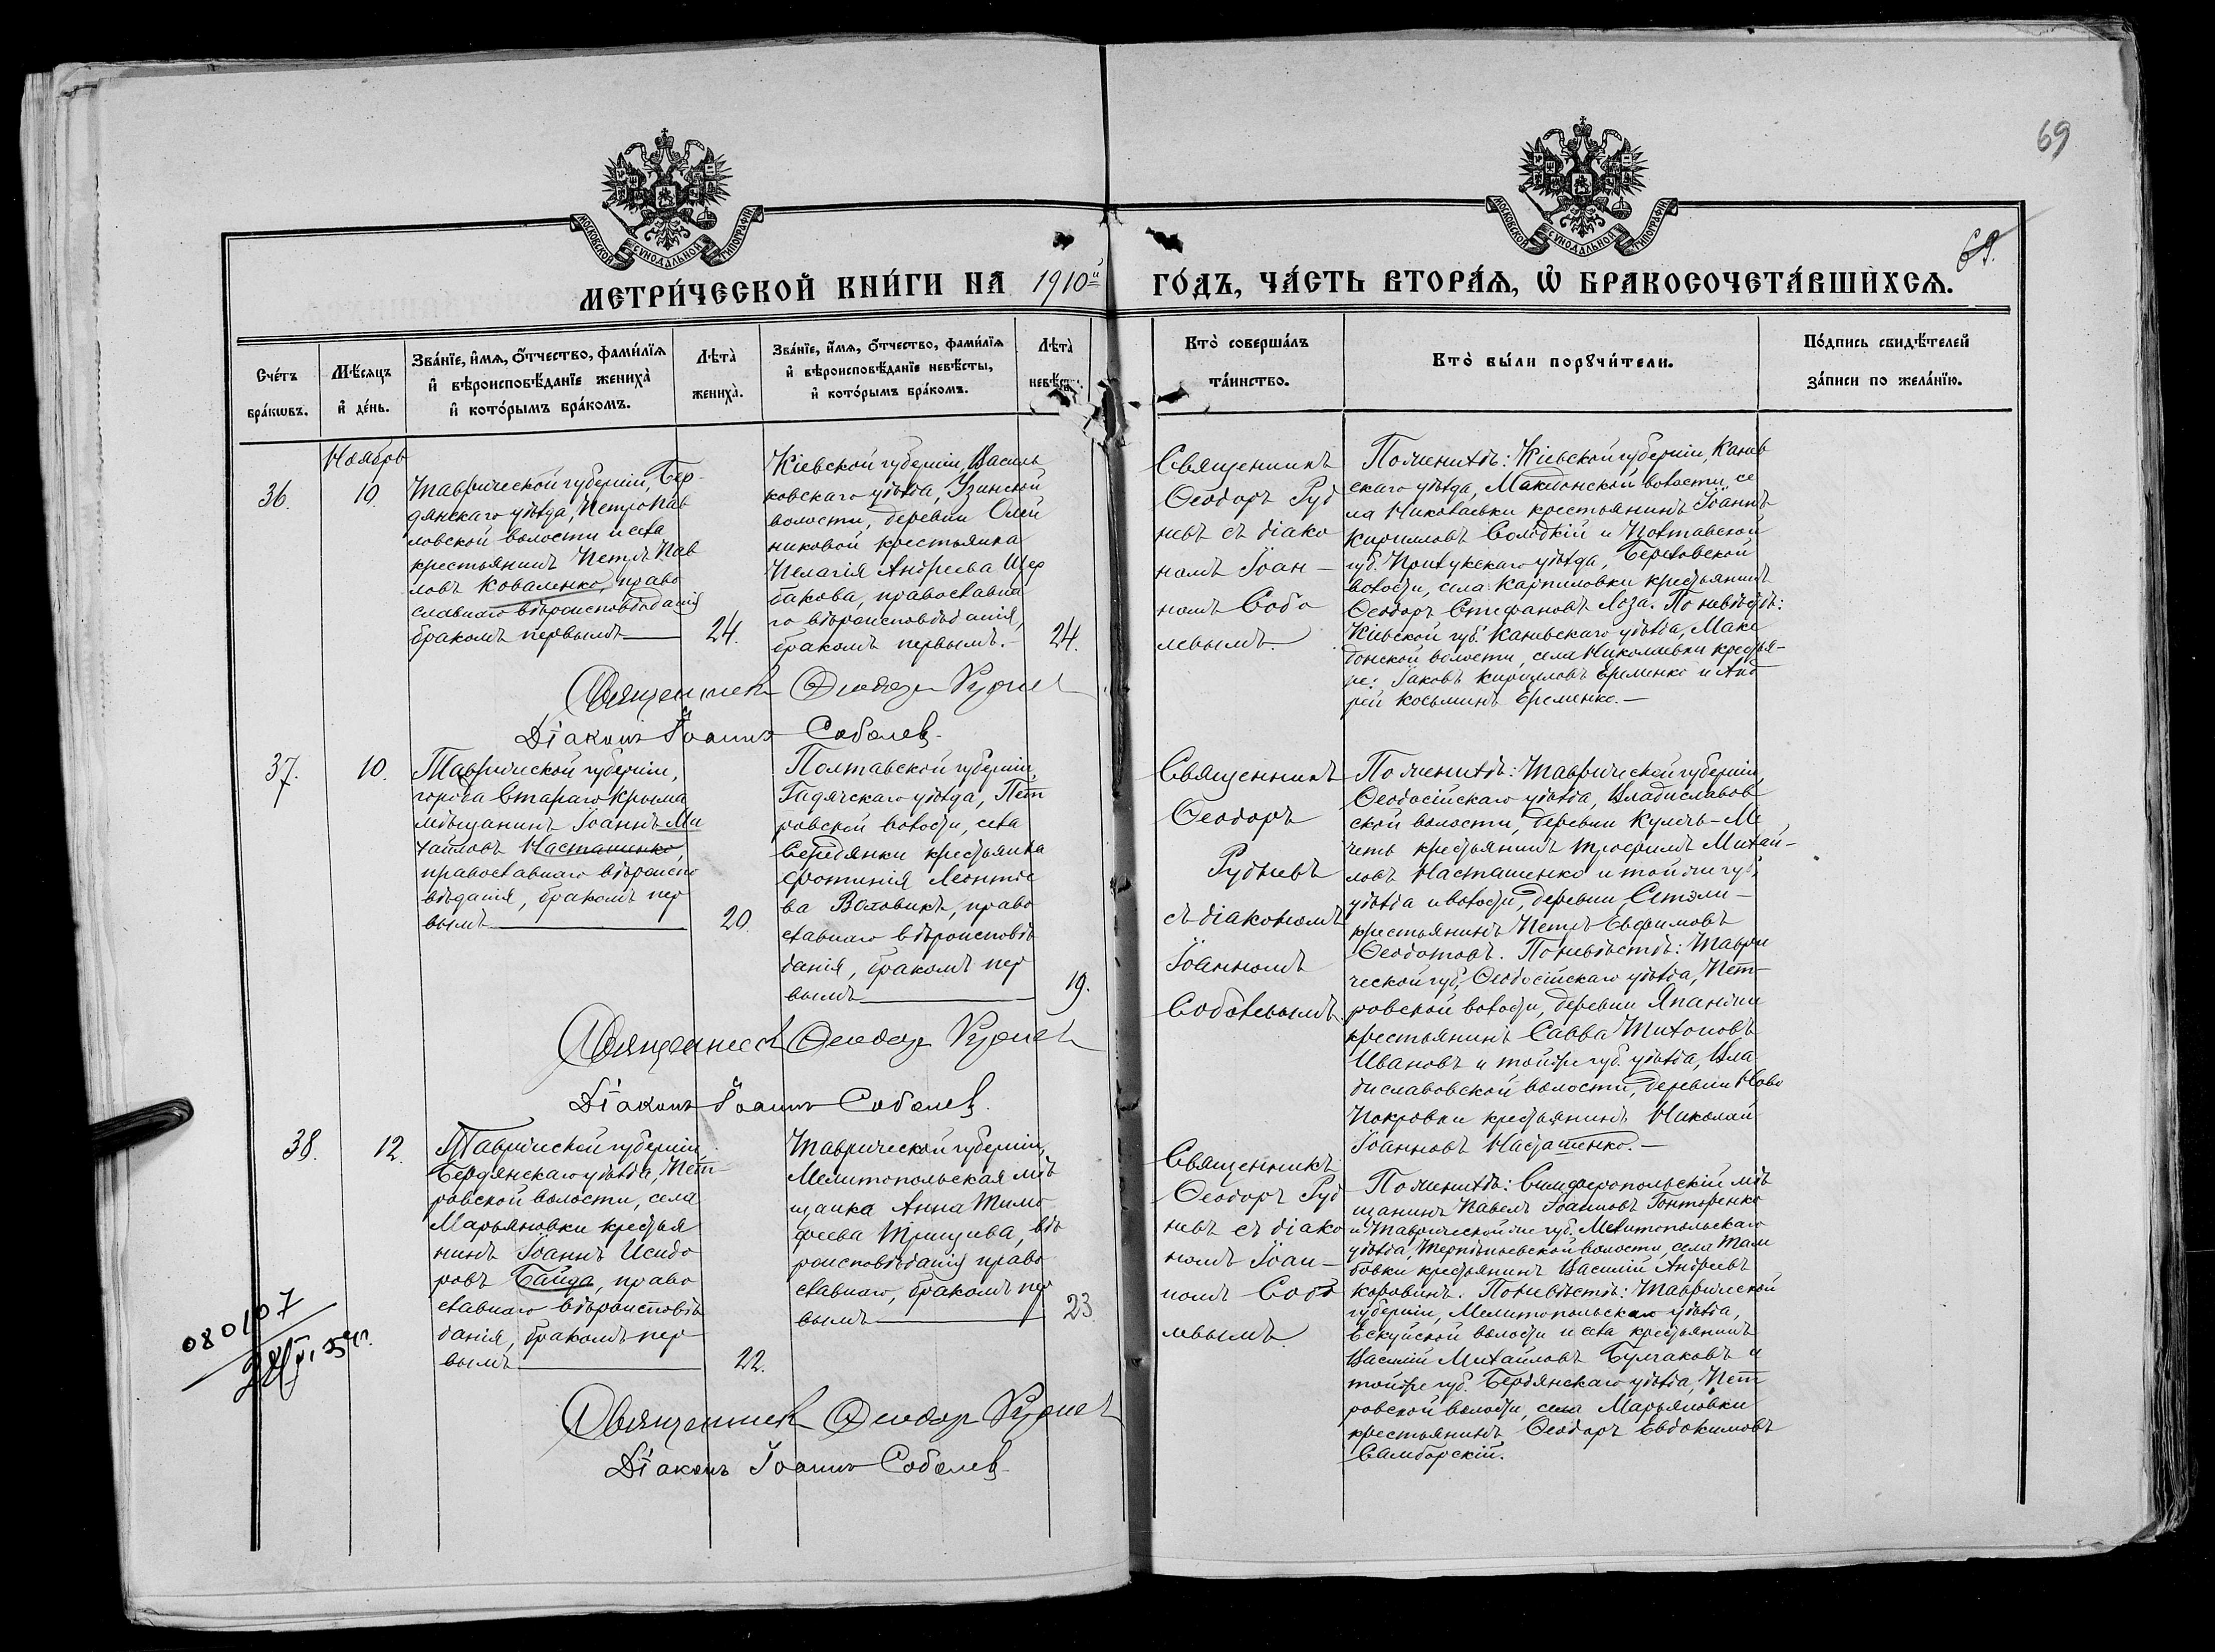 69
69.
МОСКОВСКОЙ СѴНОДАЛЬНОЙ ТИПОГРАФІИ
МОСКОВСКОЙ СѴНОДАЛЬНОЙ ТИПОГРАФІИ
МЕТРИ́ЧЕСКОЙ КНИ́ГИ НА 1910й ГО́ДЪ, ЧА́СТЬ ВТОРА́Ѧ, Ѽ БРАКОСОЧЕТА́ВШИХСѦ.
Сче́тъ
бра́кѡвъ.
Мѣ́сяцъ
и҆ де́нь.
Зва́нїе, и҆́мѧ, ѻ҆́тчество, фами́лїѧ
и҆ вѣроисповѣ́данїе жениха̀
и҆ кото́рымъ бра́комъ.
Лѣта̀
жениха̀.
Зва́нїе, и҆́мѧ, ѻ҆́тчество, фами́лїѧ
и҆ вѣроисповѣ́данїе невѣ́сты,
и҆ кото́рымъ бра́комъ.
Лѣта̀
невѣ́ст
Кто̀ соверша́лъ
та́инство.
Кто̀ бы́ли порꙋчи́тели.
По́дпись свидѣ́телей
за́писи по жела́нїю.
Ноябрь
36.
10.
Таврической губерніи, Бер-
дянскаго уѣзда, Петропав
ловской волости и села
крестьянинъ Петръ Пав
ловъ Коваленко, право
славнаго вѣроисповѣданія
бракомъ первымъ
24.
Кіевской губерніи, Василь
ковскаго уѣзда, Узинской
волости, деревни Олей
никовой крестьянка
Пелагія Андреева Щер
бакова, православна
го вѣроисповѣданія,
бракомъ первымъ.
24.
Священникъ
Ѳеодоръ Руд
невъ съ діако
номъ Іоан-
номъ Собо
левымъ.
По женихѣ: Кіевской губерніи, Канев
скаго уѣзда, Македонской волости, се
ла Николаевки крестьянинъ Іоаннъ
Кирилловъ Солодкій и Полтавской
губ. Прилукскаго уѣзда, Березовской
волости, села Карпиловки крестьянинъ
Ѳеодоръ Стефановъ Лоза. По невѣстѣ:
Кіевской губ. Каневскаго уѣзда, Маке
донской волости, села Николаевки крестья-
не: Іаковъ Кирилловъ Еременко и Анд
рей Косьминъ Еременко.
Священникъ Ѳеодоръ Рудневъ
Діаконъ Іоаннъ Соболевъ.
37.
10.
Таврической губерніи,
города Стараго Крыма
мѣщанинъ Іоаннъ Ми
хайловъ Насташенко,
православнаго вѣроиспо
вѣданія, бракомъ пер
вымъ
20.
Полтавской губерніи
Гадячскаго уѣзда, Пет
ровской волости, села
Середянки крестьянка
Фотинія Леонтіе
ва Воловикъ, право
славнаго вѣроисповѣ
данія, бракомъ пер
вымъ
19.
Священникъ
Ѳеодоръ
Рудневъ
съ діакономъ
Іоанномъ
Соболевымъ.
По женихѣ: Таврической губерніи,
Ѳеодосійскаго уѣзда, Владиславов
ской волости, деревни Кулечь-Ме
четь крестьянинъ Трофимъ Михай-
ловъ Насташенко и той же губ.,
уѣзда и волости, деревни Сеттли-
крестьянинъ Петръ Евфимовъ
Ѳеодотовъ. По невѣстѣ: Таври
ческой губ., Ѳеодосійскаго уѣзда, Пет-
ровской волости, деревни Япанчи
крестьянинъ Савва Тихоновъ
Ивановъ и той же губ. уѣзда, Вла
диславовской волости, деревни Ново
Покровки крестьянинъ Николай
Іоанновъ Насташенко.
Священникъ Ѳеодоръ Рудневъ
Діаконъ Іоаннъ Соболевъ.
38.
12.
Таврической губерніи
Бердянскаго уѣзда, Пет-
ровской волости, села
Марьяновки крестья
нинъ Іоаннъ Исидо
ровъ Байда, право
славнаго вѣроисповѣ
данія, бракомъ пер
вымъ
22.
Таврической губерніи,
Мелитопольская мѣ
щанка Анна Тимо
феева Грицева, вѣ
роисповѣданія право
славнаго, бракомъ пер
вымъ
23.
Священникъ
Ѳеодоръ Руд
невъ съ діако
номъ Іоан-
номъ Собо
левымъ.
По женихѣ: Симферопольскій мѣ
щанинъ Павелъ Іоанновъ Гонторенко
и Таврической же губ. Мелитопольскаго
уѣзда, Терпѣньевской волости, села Там
бовки крестьянинъ Василій Андреевъ
Коровинъ. По невѣстѣ: Таврической
губерніи, Мелитопольскаго уѣзда,
Ескуйской волости и села крестьянинъ
Василій Михайловъ Булгаковъ и
той же губ. Бердянскаго уѣзда, Пет
ровской волости, села Марьяновки
крестьянинъ Ѳеодоръ Евдокимовъ
Самборскій.
Священникъ Ѳеодоръ Рудневъ
Діаконъ Іоаннъ Соболевъ.
080107